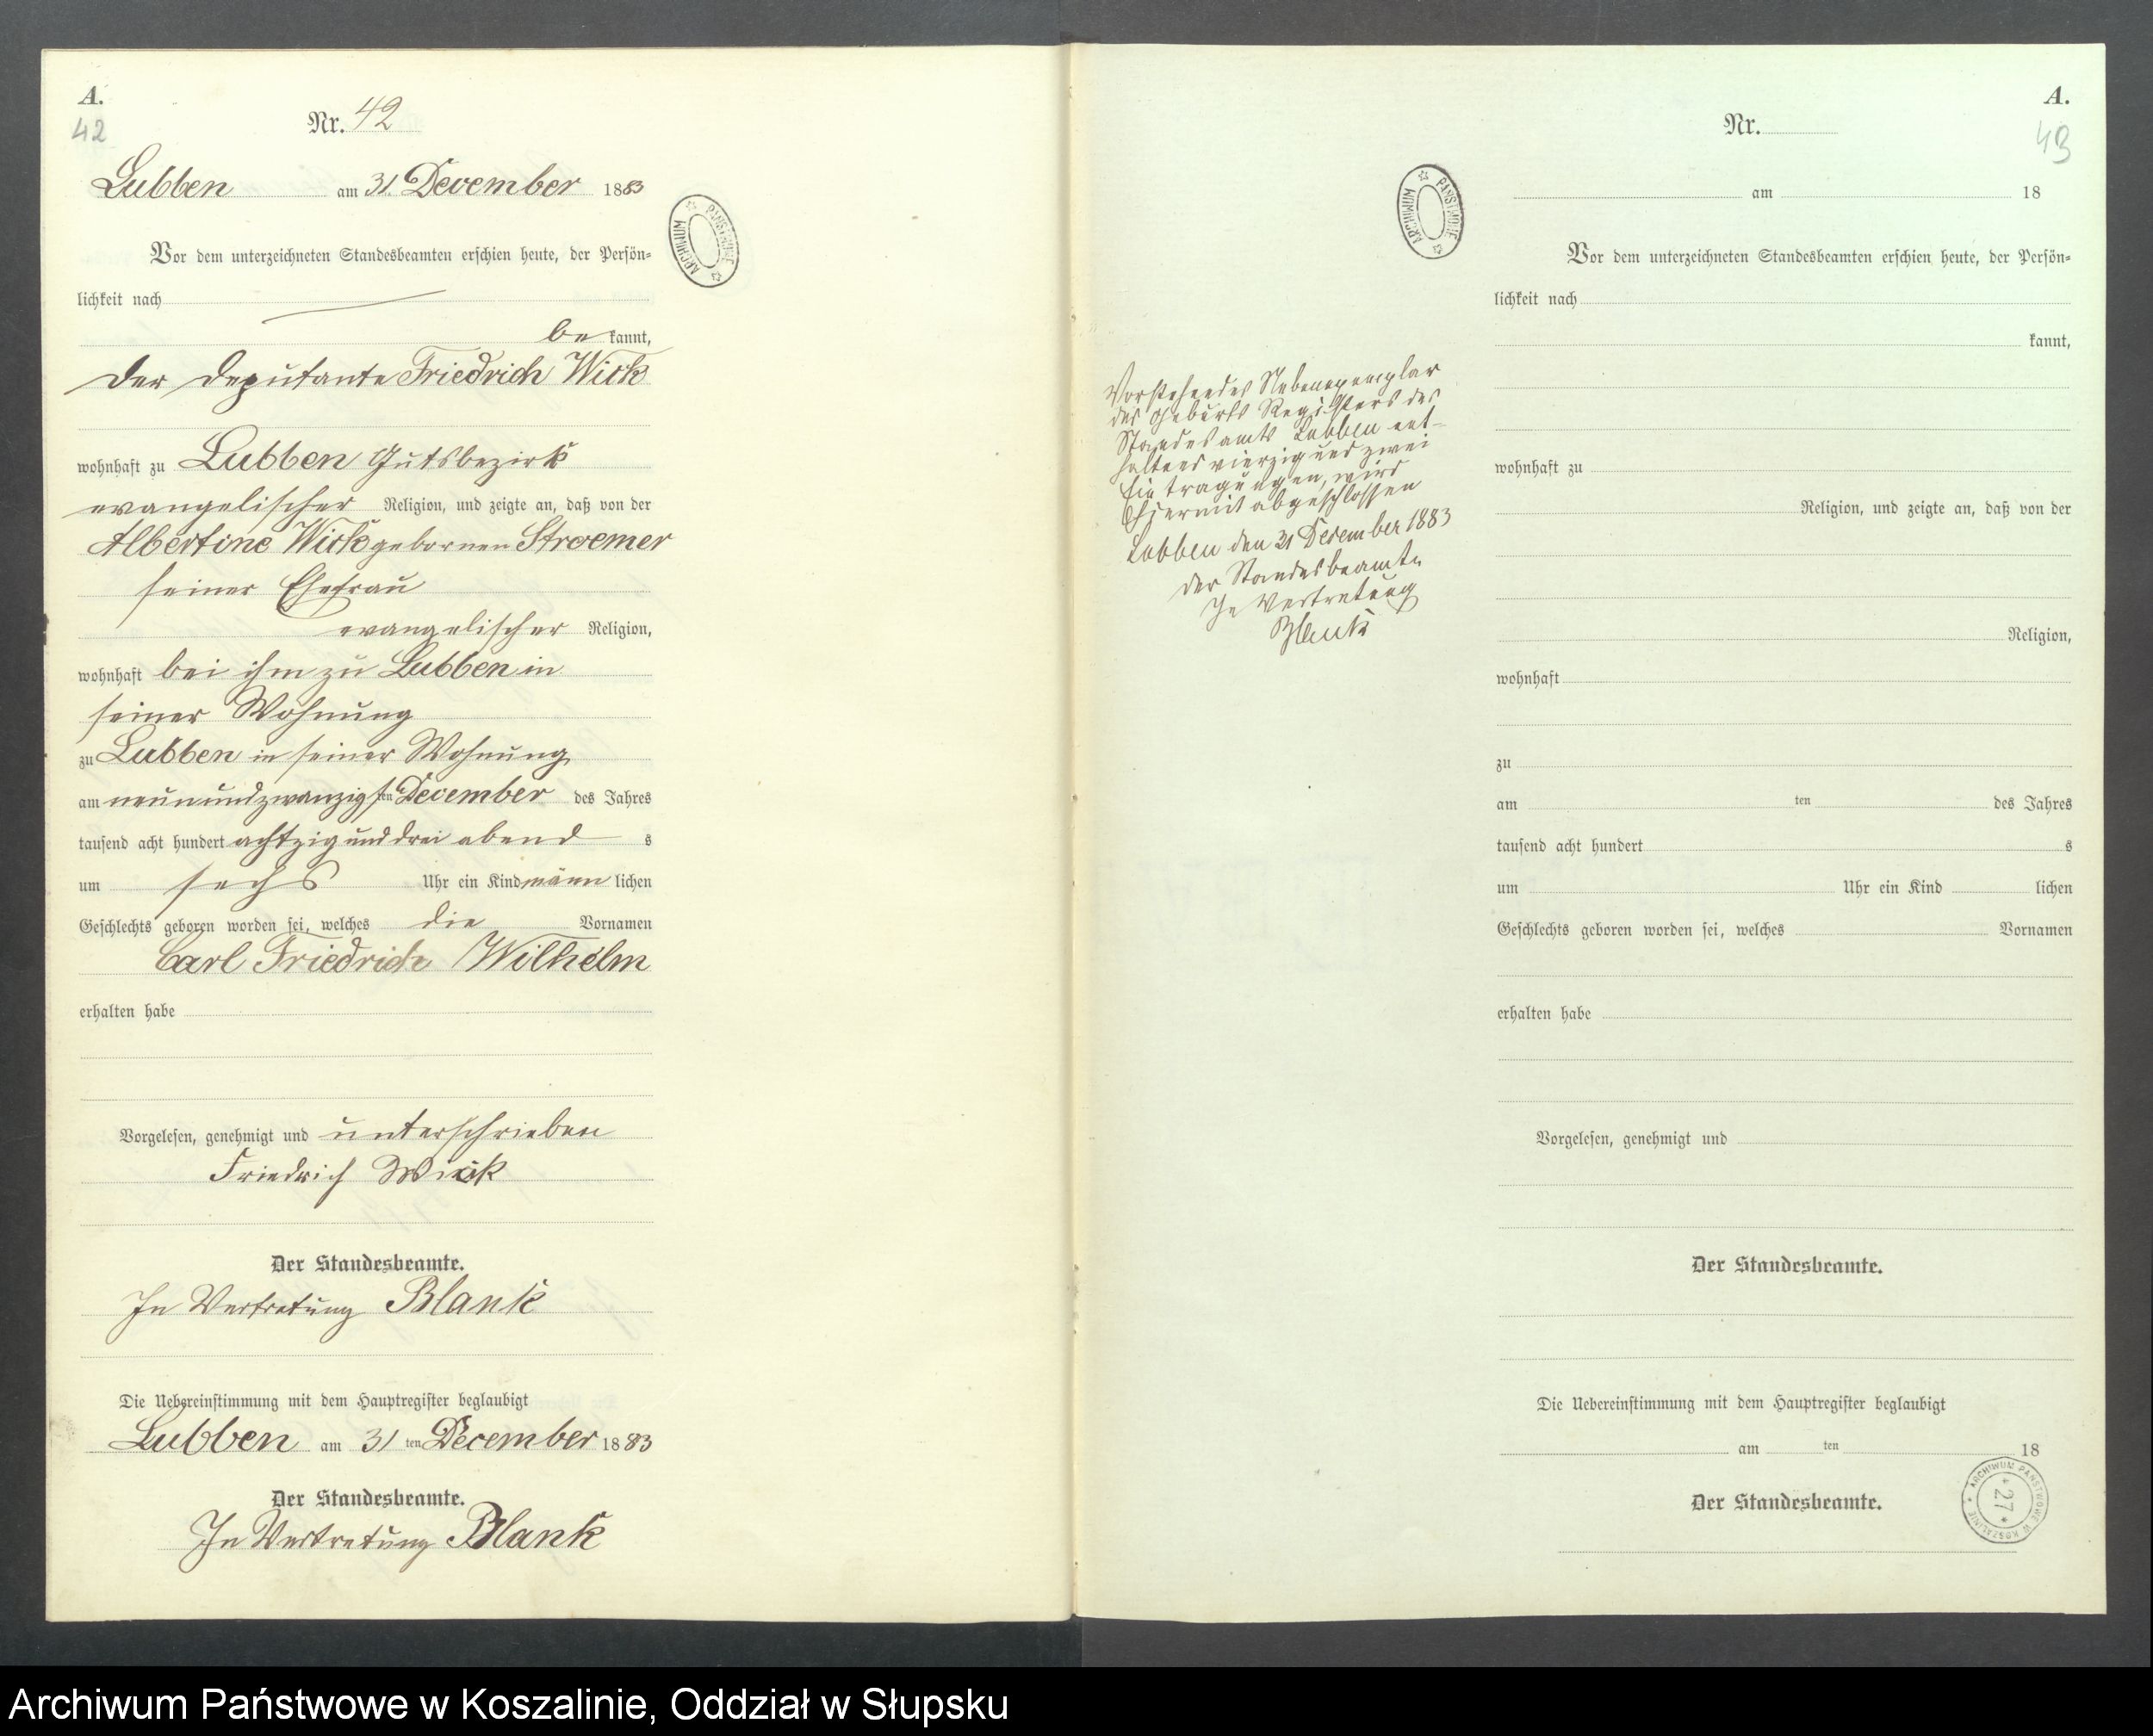 A.
42
Nr. 42
Lubben am 31. December 1883
Vor dem unterzeichneten Standesbeamten erschien heute, der Persön-
lichkeit nach
be kannt,
der Deputante Friedrich Wick
wohnhaft zu Lubben Gutsbezirk
evangelischer Religion, und zeigte an, daß von der
Albertine Wick gebornen Stroemer
seiner Ehefrau
evangelischer Religion,
wohnhaft bei ihm zu Lubben in
seiner Wohnung
zu Lubben in seiner Wohnung
am neunundzwanzigsten December des Jahres
tausend acht hundert achtzig und drei abend s
um sechs Uhr ein Kind männlichen
Geschlechts geboren worden sei, welches die Vornamen
Carl Friedrich Wilhelm
erhalten habe
Vorgelesen, genehmigt und unterschrieben
Friedrich Wick
Der Standesbeamte.
In Vertretung Blank
Die Uebereinstimmung mit dem Hauptregister beglaubigt
Lubben am 31 ten December 1883
Der Standesbeamte.
In Vertretung Blank
ARCHIWUM PAŃSTWOWE
ARCHIWUM PAŃSTWOWE
Vorstehendes Nebenexemplar
des Geburts Registers des
Standesamts Lubben ent-
haltend vierzig und zwei
Eintragungen, wird
hiermit abgeschlossen
Lubben den 31 December 1883
der Standesbeamte
In Vertretung
Blank
A.
43
Nr.
am 18
Vor dem unterzeichneten Standesbeamten erschien heute, der Persön-
lichkeit nach
kannt,
wohnhaft zu
Religion, und zeigte an, daß von der
Religion,
wohnhaft
zu
am ten des Jahres
tausend acht hundert s
um Uhr ein Kind lichen
Geschlechts geboren worden sei, welches Vornamen
erhalten habe
Vorgelesen, genehmigt und
Der Standesbeamte.
Die Uebereinstimmung mit dem Hauptregister beglaubigt
am ten 18
Der Standesbeamte.
ARCHIWUM PAŃSTWOWE W KOSZALINIE
* 27 *
Archiwum Państwowe w Koszalinie, Oddział w Słupsku